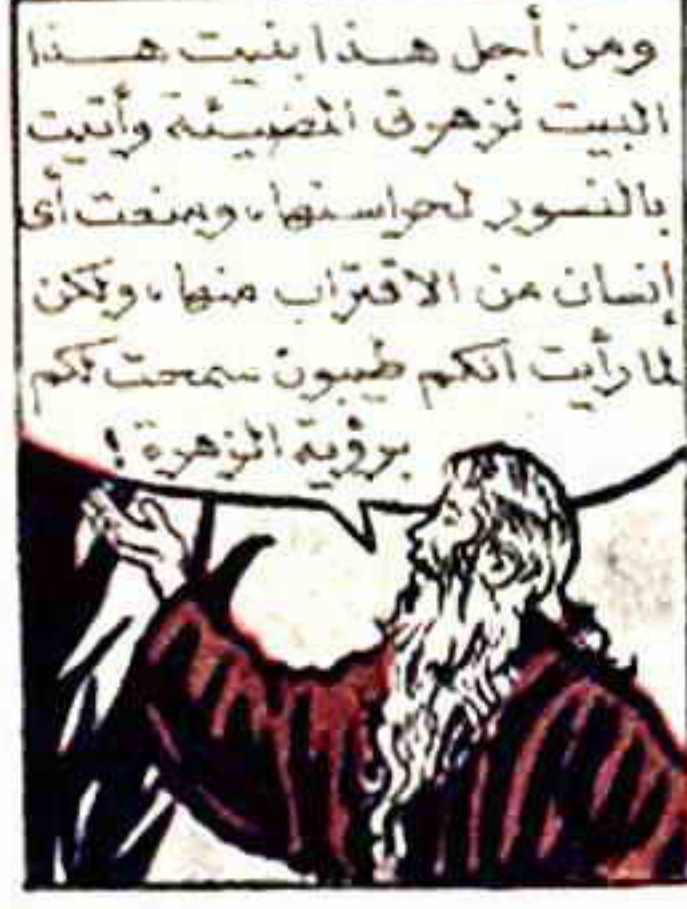 ومن أجل هـذا بنيت هـذا
البيت لزهرتى المضيئة وأتيت
بالنسور لحراستها، ومنعت أى
إنسان من الاقتراب منها، ولكن
لما رأيت أنكم طيبون سمحت لكم
برؤية الزهرة!